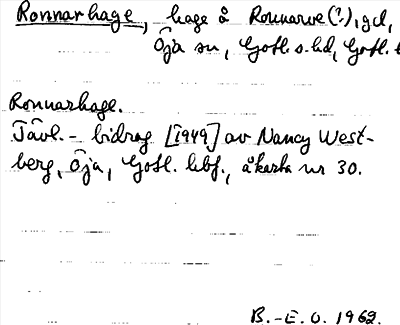 Ronnarhage, hage å Ronnarve(?), gd,
Öja sn, Gotl. s. hd, Gotl. l
Ronnarhage.
Tävl.-bidrag [1949] av Nancy West-
berg, Öja, Gotl. lbf., åkarta nr 30.
B.-E. O. 1962.